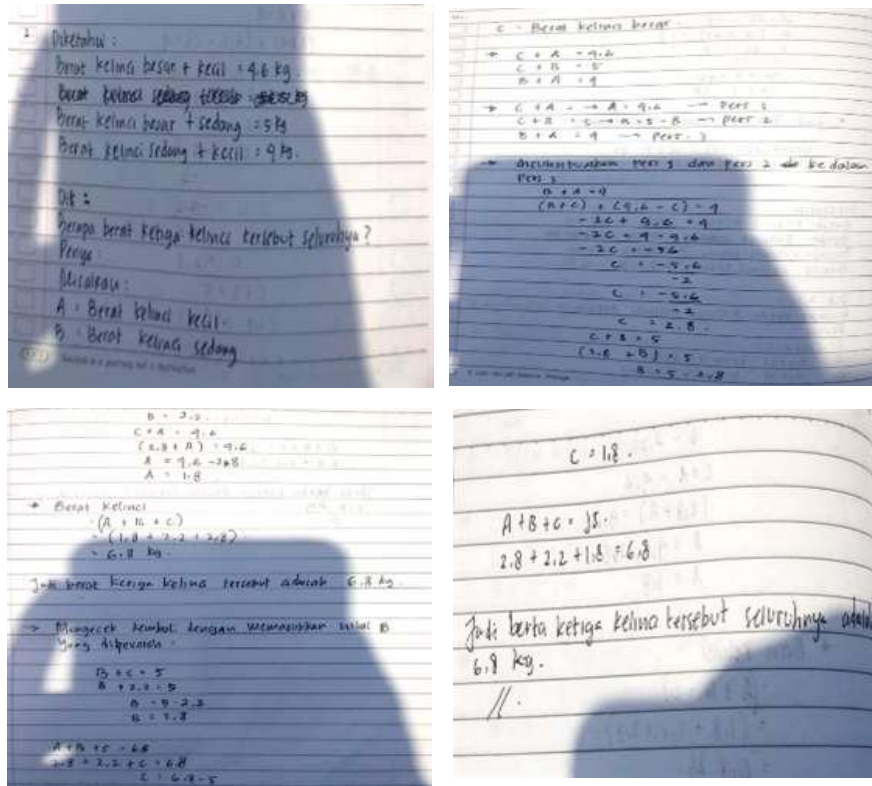 2 Diketahui :
Berat kelinci besar + kecil = 4,6 kg.
Berat kelinci sedang
Berat kelinci besar + sedang = 5 kg
Berat kelinci sedang + kecil = 4 kg.
Dit :
Berapa berat ketiga kelinci tersebut seluruhnya ?
Penye
Misalkan :
A = Berat kelinci kecil.
B = Berat kelinci sedang
C = Berat kelinci besar.
→ C + A = 4.6
C + B = 5
B + A = 4
→ C + A = → A = 4,6 → Pers 1
C + B = 5 → B → Pers 2
B + A = 4 → Pers. 3
→ Pers 1 dan Pers 2 ke dalam
Pers 3
B + A = 4
+ (4,6 - C) = 4
- 2C + 9,6 = 4
- 2C = 4 - 9,6
C = -5,6
-2
C = -5,6
-2
C = 2.8.
C + B = 5
(2.8 + B) = 5
B = 5 - 2,8
B = 2.2.
C + A = 4.6
(2,8 + A) = 4,6
A = 4,6 - 2,8
A = 1.8
→ Berat kelinci
= (A + B + C)
= (1,8 + 2,2 + 2,8)
= 6.8 kg.
Jadi berat ketiga kelinci tersebut adalah 6.8 kg.
→ Mengecek kembali dengan memasukkan nilai B
yang diperoleh.
B + C = 5
B + 2,2 = 5
B = 5 - 2,2
B = 2.8
A + B + C = 6.8
2.8 + 2.2 + C = 6.8
C = 6.8 - 5
C = 1,8.
A + B + C =
2.8 + 2,2 + 1,8 = 6,8
Jadi berta ketiga kelinci tersebut seluruhnya adalah
6,8 kg.
//.